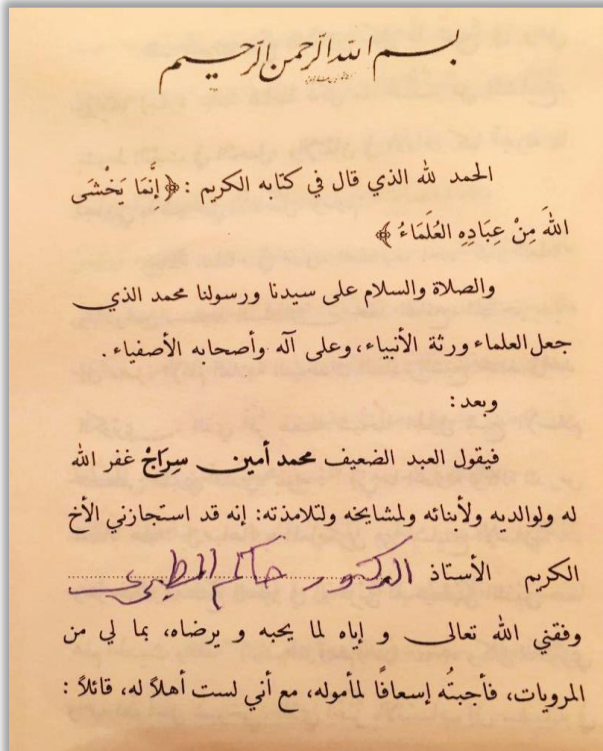 بسم الله الرحمن الرحيم
الحمد لله الذي قال في كتابه الكريم : ﴿ إِنَّمَا يَخْشَى
اللهَ مِنْ عِبَادِهِ العُلَمَاءُ ﴾
والصلاة والسلام على سيدنا ورسولنا محمد الذي
جعل العلماء ورثة الأنبياء، وعلى آله وأصحابه الأصفياء .
وبعد :
فيقول العبد الضعيف محمد أمين سِرَاجْ غفر الله
له ولوالديه ولأبنائه ولمشايخه ولتلامذته: إنه قد استجازني الأخ
الكريم الأستاذ الدكتور حاتم المطيري
وفقني الله تعالى و إياه لما يحبه و يرضاه، بما لي من
المرويات، فأجبتُه إسعافًا لمأموله، مع أني لست أهلاً له، قائلاً :